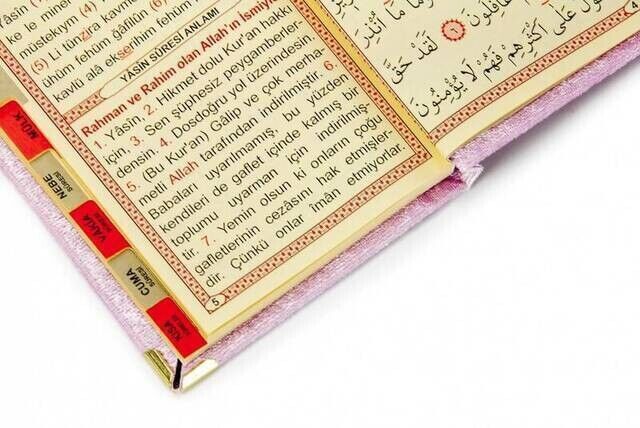 Yâsîn
ke le mine
müstekıym (4)
(5) Li tünzira kavmen
ühüm fehüm ğafilûn (6)
kavlü alâ ekserihim fehüm
YÂSÎN SÛRESİ ANLAMI
Rahman ve Rahim olan Allah'ın İsmiyle
1. Yâsîn, 2. Hikmet dolu Kur'an hakkı
için, 3. Sen şüphesiz peygamberler-
densin. 4. Dosdoğru yol üzerindesin.
5. (Bu Kur'an) Gâlip ve çok merha-
metli Allah tarafından indirilmiştir. 6.
Babaları uyarılmamış, bu yüzden
kendileri de gaflet içinde kalmış bir
toplumu uyarman için indirilmiş-
tir. 7. Yemin olsun ki onların çoğu
gafletlerinin cezasını hak etmişler-
dir. Çünkü onlar îmân etmiyorlar.
5
مَا أُنْذِرَ
غَافِلُونَ ﴿٦﴾ لَقَدْ حَقَّ
الْقَوْلُ عَلَى أَكْثَرِهِمْ فَهُمْ لَا يُؤْمِنُونَ
MÜLK
NEBE
SÛRESİ
VÂKIA
SÛRESİ
CUMA
SÛRESİ
KISA
SÛRELER